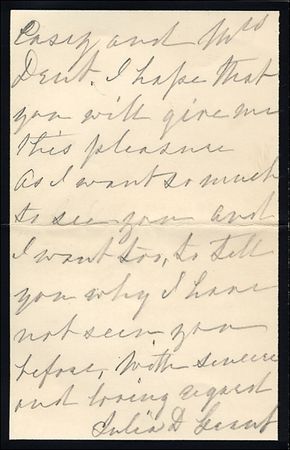 Casey and Mrs
Dent. I hope that
you will give me
this pleasure
as I want so much
to see you and
I want too, to tell
you why I have
not seen you
before, With sincere
and loving regard
Julia D Grant